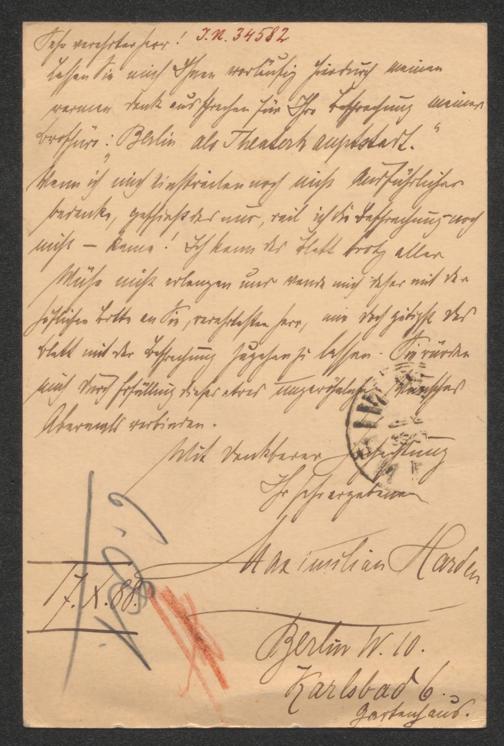 Sehr verehrter Herr! J.N. 34582
Lassen Sie mich Ihnen vorläufig hierdurch meinen
warmen Dank aussprechen für Ihre Besprechung meiner
Broschüre: "Berlin als Theaterhauptstadt."
Wenn ich mich einstweilen noch nicht ausführlicher
bedanke, geschieht das nur, weil ich die Besprechung noch
nicht – kenne! Ich kann das Blatt trotz aller
Mühe nicht erlangen und wende mich daher mit der
höflichen Bitte an Sie, verehrtester Herr, mir doch gütigst das
Blatt mit der Besprechung zugehen zu lassen. Sie würden
mich durch Erfüllung dieses etwas Wunsches
Abermals verbinden.
Mit dankbarer Hochachtung
Ihr sehr ergebener
Maximilian Harden
7. X. 88.
Berlin W. 10.
Karlsbad 6.
Gartenhaus.